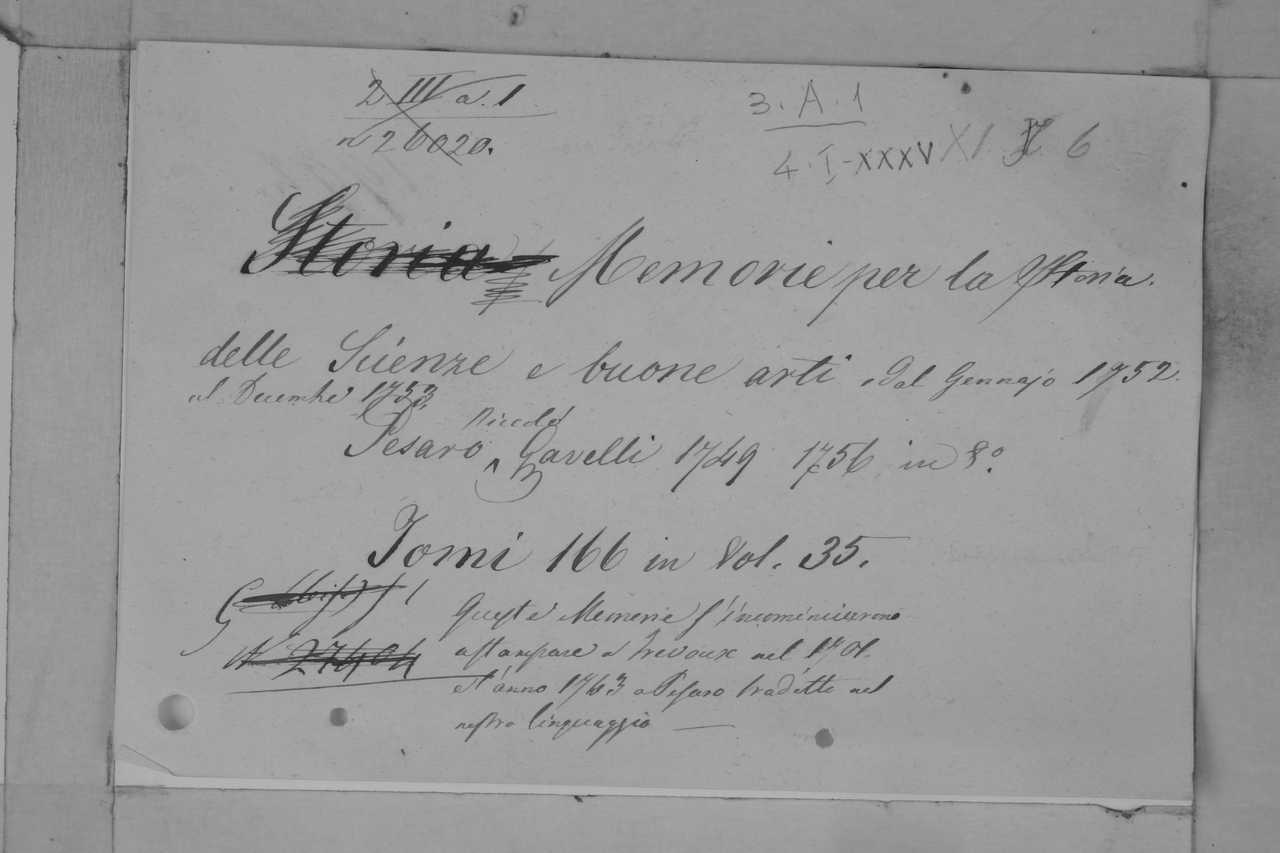 2 III a. 1
n° 26020.
3. A. 1
4. I-XXXV XI 6
Storia Memorie per la Storia.
delle Scienze e buone arti, dal Gennajo 1752.
al Decembre 1753.
Niccolò
Pesaro Gavelli 1749 1756 in 8°
Tomi 166 in Vol. 35.
G 1
N 27404
Queste Memorie s'incominciarono
a stampare a Trevoux nel 1701.
e l'anno 1743 a Pesaro tradotte nel
nostro linguaggio —